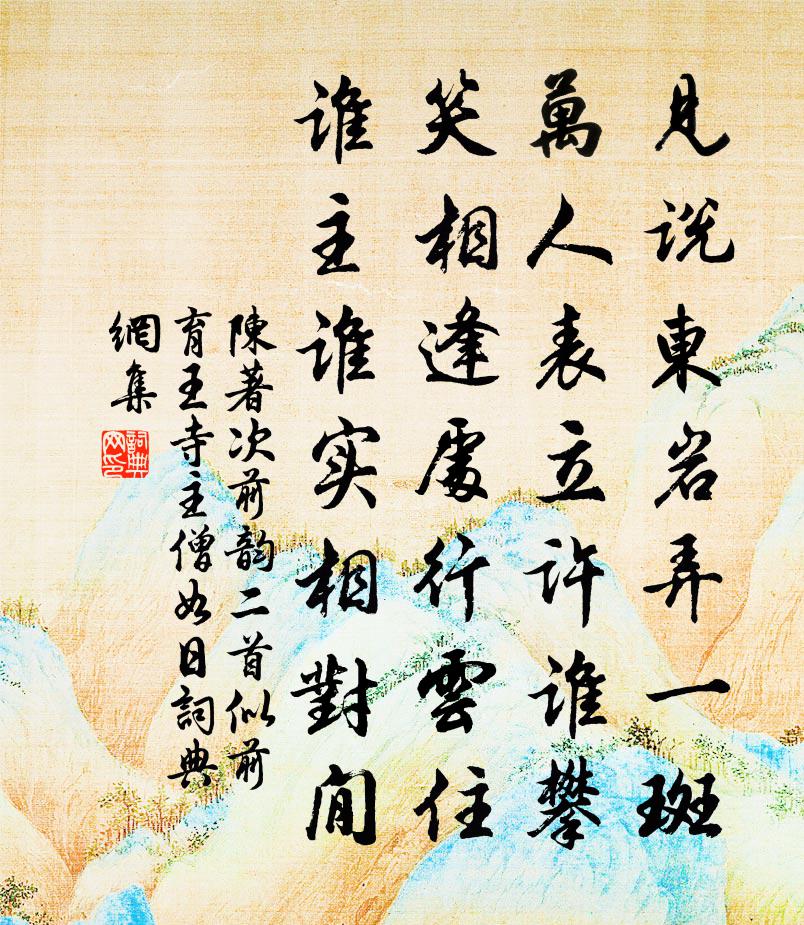 見说東岩弄一斑
萬人表立許谁攀
笑相逢處行雲住
谁主谁实相對間
陳著次前韵二首似前
育王寺主僧如日詞典
網集
詞典网印